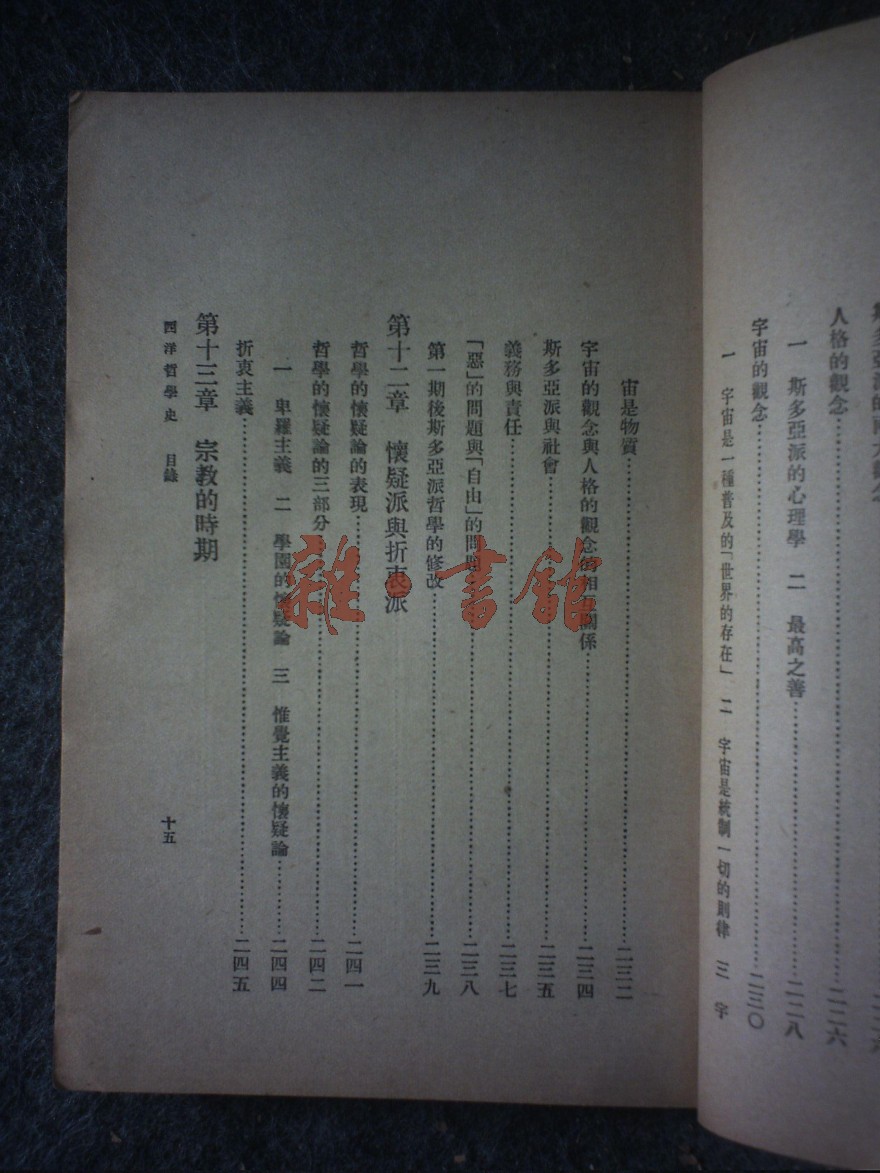 人格的觀念……二二六
一 斯多亞派的心理學 二 最高之善……二二八
宇宙的觀念……二三〇
一 宇宙是一種普及的「世界的存在」 二 宇宙是統制一切的則律 三 宇
宙是物質……二三二
宇宙的觀念與人格的觀念的相互關係……二三四
斯多亞派與社會……二三五
義務與責任……二三七
「惡」的問題與「自由」的問題……二三八
第一期後斯多亞派哲學的修改……二三九
第十二章 懷疑派與折衷派
哲學的懷疑論的表現……二四一
哲學的懷疑論的三部分……二四二
一 卑羅主義 二 學園的懷疑論 三 惟覺主義的懷疑論……二四四
折衷主義……二四五
第十三章 宗教的時期
西洋哲學史 目錄 十五
雜·書館